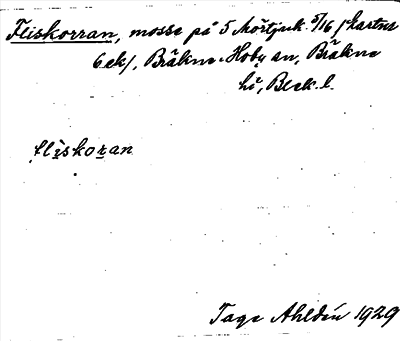 Fliskorran, mosse på 5 Mörtjuk. 5/16 /kartns
6 ek/, Bräkne-Hoby sn, Bräkne
hd, Blek. l.
fliskoran
Tage Ahldén 1929